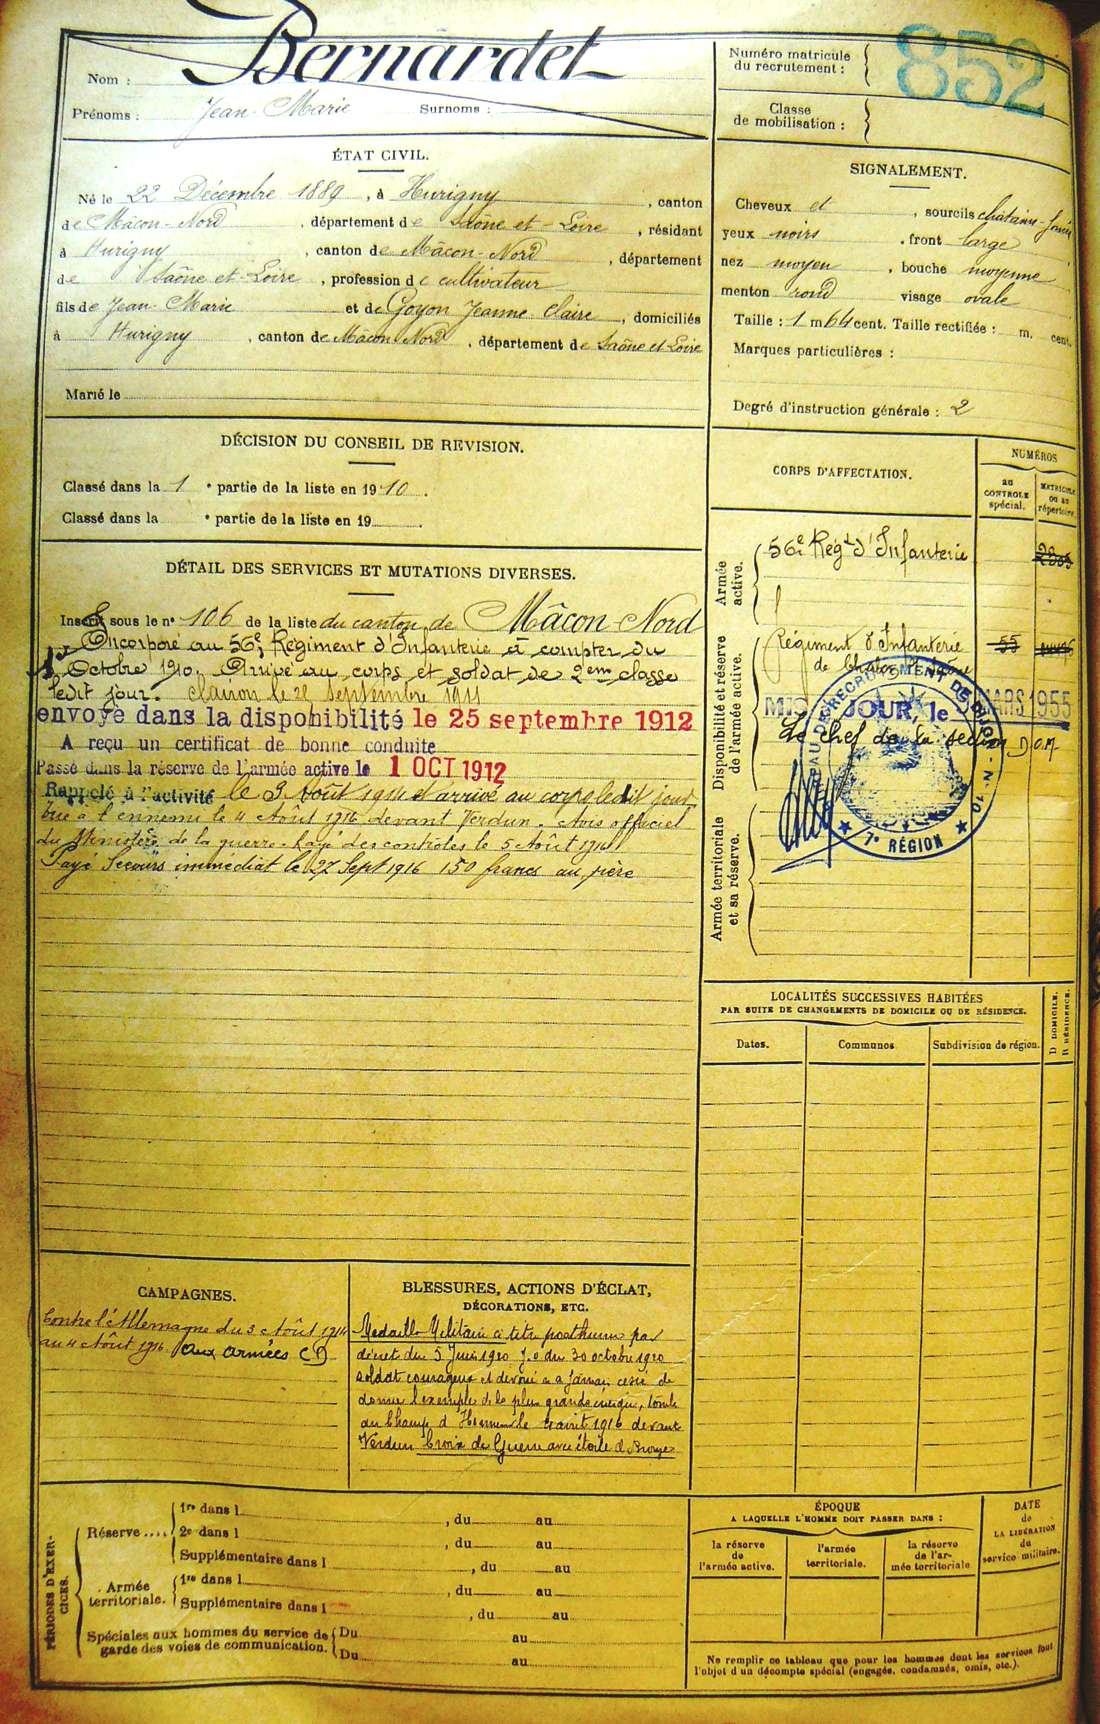 Nom : Bernardet
Prénoms : Jean-Marie Surnoms :
Numéro matricule du recrutement : 852
Classe de mobilisation :
ÉTAT CIVIL.
Né le 22 Décembre 1889, à Hurigny, canton
de Mâcon-Nord, département de Saône et-Loire, résidant
à Hurigny, canton de Mâcon-Nord, département
de Saône et-Loire, profession de cultivateur
fils de Jean-Marie et de Goyon Jeanne Claire, domiciliés
à Hurigny, canton de Mâcon Nord, département de Saône et Loire
Marié le
SIGNALEMENT.
Cheveux et, sourcils châtain-foncé
yeux noirs, front large
nez moyen, bouche moyenne
menton rond visage ovale
Taille : 1 m 64 cent. Taille rectifiée : m. cent.
Marques particulières :
Degré d'instruction générale : 2
DÉCISION DU CONSEIL DE REVISION.
Classé dans la 1e partie de la liste en 1910.
Classé dans la e partie de la liste en 19
DÉTAIL DES SERVICES ET MUTATIONS DIVERSES.
Inscrit sous le n° 106 de la liste du canton de Mâcon Nord
Incorporé au 56e Régiment d'Infanterie à compter du
1er Octobre 1910. Arrivé au corps et soldat de 2em classe
ledit jour. Clairon le 21 septembre 1911
envoyé dans la disponibilité le 25 septembre 1912
A reçu un certificat de bonne conduite
Passé dans la réserve de l'armée active le 1 OCT 1912
Rappelé à l'activité le 3 Août 1914 et arrivé au corps ledit jour
Tué à l'ennemi le 4 Août 1916 devant Verdun. Avis officiel
du Ministère de la guerre. Rayé des contrôles le 5 Août 1916
Payé Secours immédiat le 27 Sept 1916 150 francs au père
CORPS D'AFFECTATION.
NUMÉROS
au CONTROLE spécial.
MATRICULE ou au répertoire.
Armée active.
56e Régt d'Infanterie
Disponibilité et réserve de l'armée active.
Régiment d'Infanterie 55
de Chalon
MIS A JOUR, le MARS 1955
Le Chef de la section
BUREAU DE RECRUTEMENT DE DIJON - N° 10
★ 7e RÉGION ★
Armée territoriale et sa réserve.
LOCALITÉS SUCCESSIVES HABITÉES
PAR SUITE DE CHANGEMENTS DE DOMICILE OU DE RÉSIDENCE.
D DOMICILE.
R RÉSIDENCE.
Dates. Communes Subdivision de région.
CAMPAGNES.
Contre l'Allemagne du 3 Août 1914
au 4 Août 1916. aux armées CD
BLESSURES, ACTIONS D'ÉCLAT,
DÉCORATIONS, ETC.
Médaille Militaire à titre posthume par
décret du 5 Juin 1920 J.O du 30 octobre 1920
soldat courageux et dévoué n'a jamais cessé de
donner l'exemple de la plus grande énergie, tombé
au Champ d'Honneur le 4 août 1916 devant
Verdun Croix de Guerre avec étoile de Bronze
PÉRIODES D'EXERCICES.
Réserve .... 1re dans l , du au
2e dans l , du au
Supplémentaire dans l , du au
Armée territoriale. 1re dans l , du au
Supplémentaire dans l , du au
Spéciales aux hommes du service de garde des voies de communication. Du au
Du au
ÉPOQUE
A LAQUELLE L'HOMME DOIT PASSER DANS :
la réserve de l'armée active.
l'armée territoriale.
la réserve de l'armée territoriale
DATE de LA LIBÉRATION du service militaire.
Ne remplir ce tableau que pour les hommes dont les services font
l'objet d'un décompte spécial (engagés, condamnés, omis, etc.).